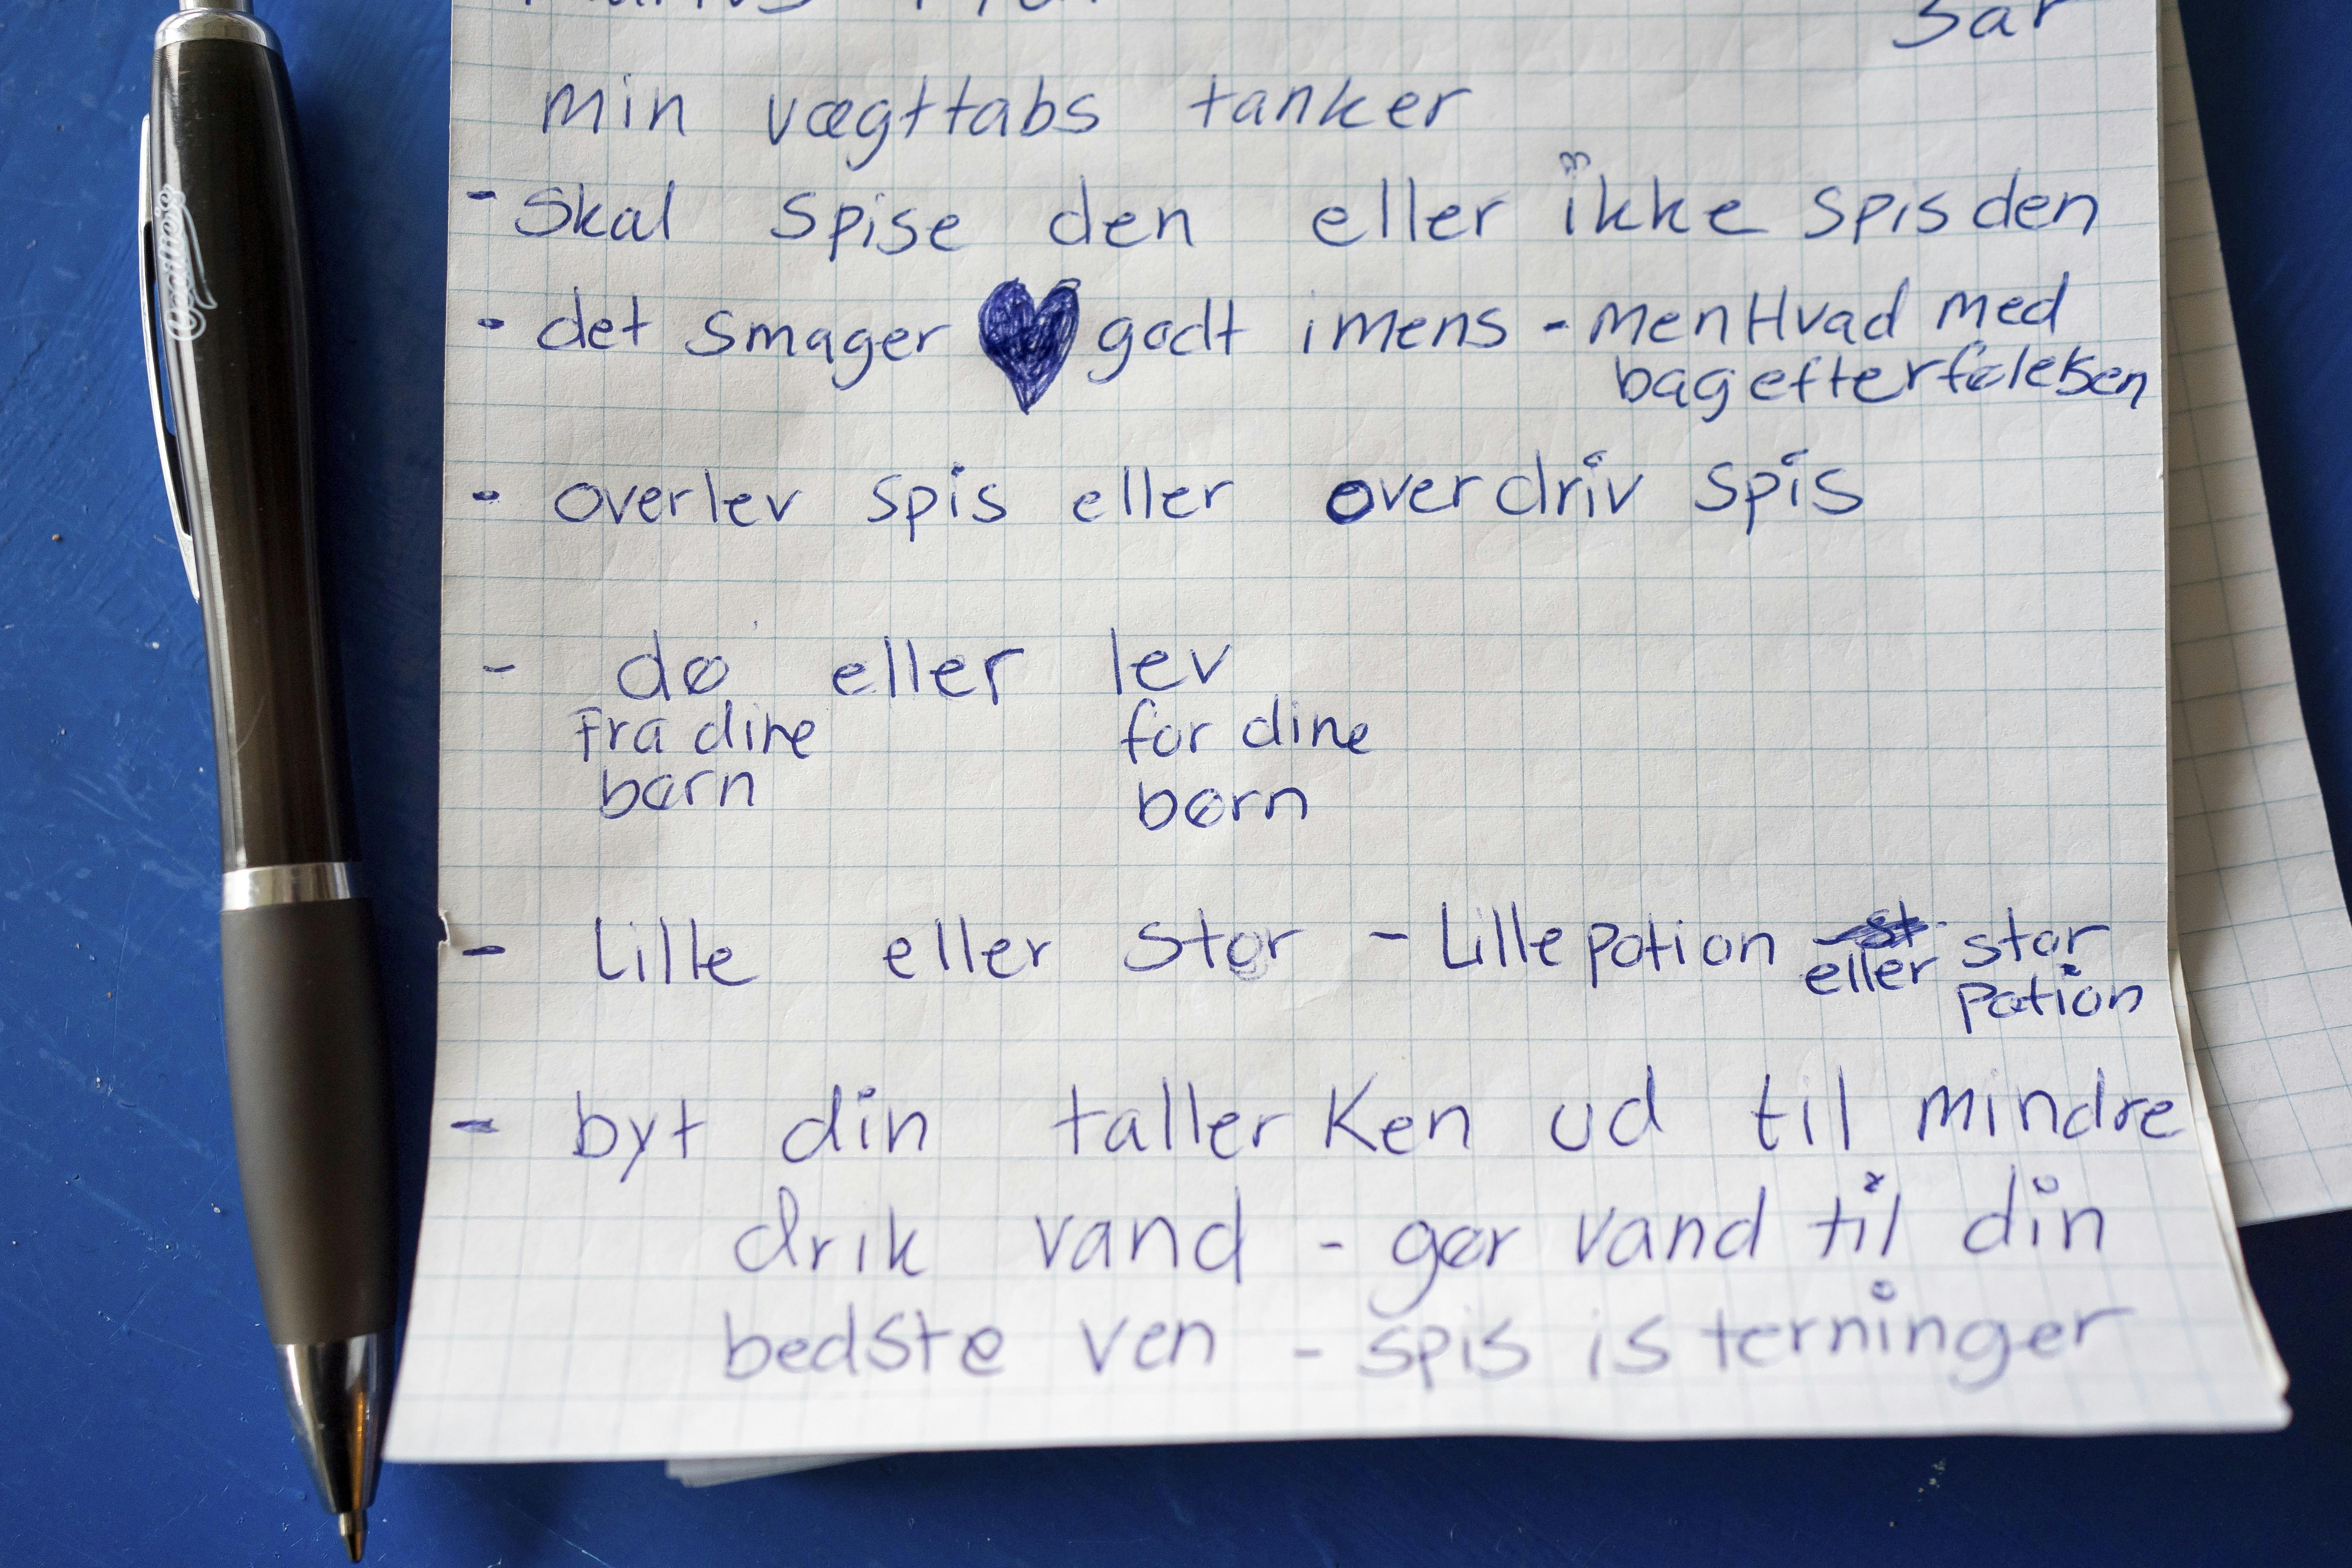 min vægttabs tanker
- Skal spise den eller ikke spis den
- det smager godt imens - men Hvad med
bagefterfølelsen
- overlev spis eller overdriv spis
- dø eller lev
Fra dine for dine
børn børn
- Lille eller stor - Lille potion eller stor
potion
- byt din tallerken ud til mindre
drik vand - gør vand til din
bedste ven - spis isterninger